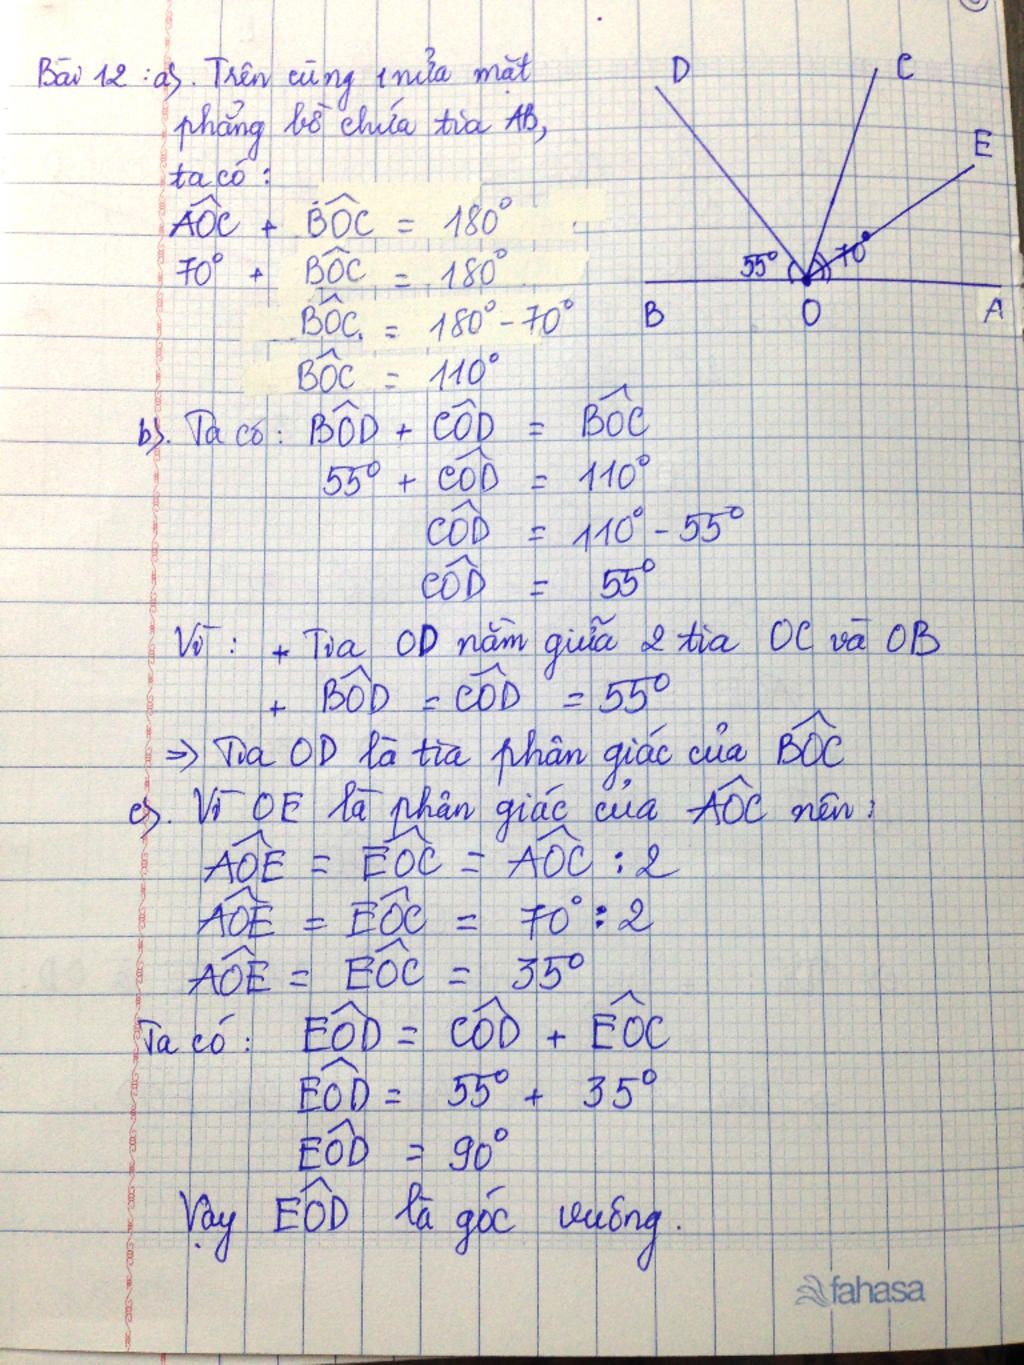 Bài 12 : a). Trên cùng 1 nửa mặt
phẳng bờ chứa tia AB,
ta có :
AÔC + BÔC = 180°
70° + BÔC = 180°
BÔC = 180° - 70°
BÔC = 110°
D
C
E
55°
70°
B
O
A
b). Ta có : BÔD + CÔD = BÔC
55° + CÔD = 110°
CÔD = 110° - 55°
CÔD = 55°
Vì : + Tia OD nằm giữa 2 tia OC và OB
+ BÔD = CÔD = 55°
=> Tia OD là tia phân giác của BÔC
c). Vì OE là phân giác của AÔC nên :
AÔE = EÔC = AÔC : 2
AÔE = EÔC = 70° : 2
AÔE = EÔC = 35°
Ta có : EÔD = CÔD + EÔC
EÔD = 55° + 35°
EÔD = 90°
Vậy EÔD là góc vuông.
fahasa